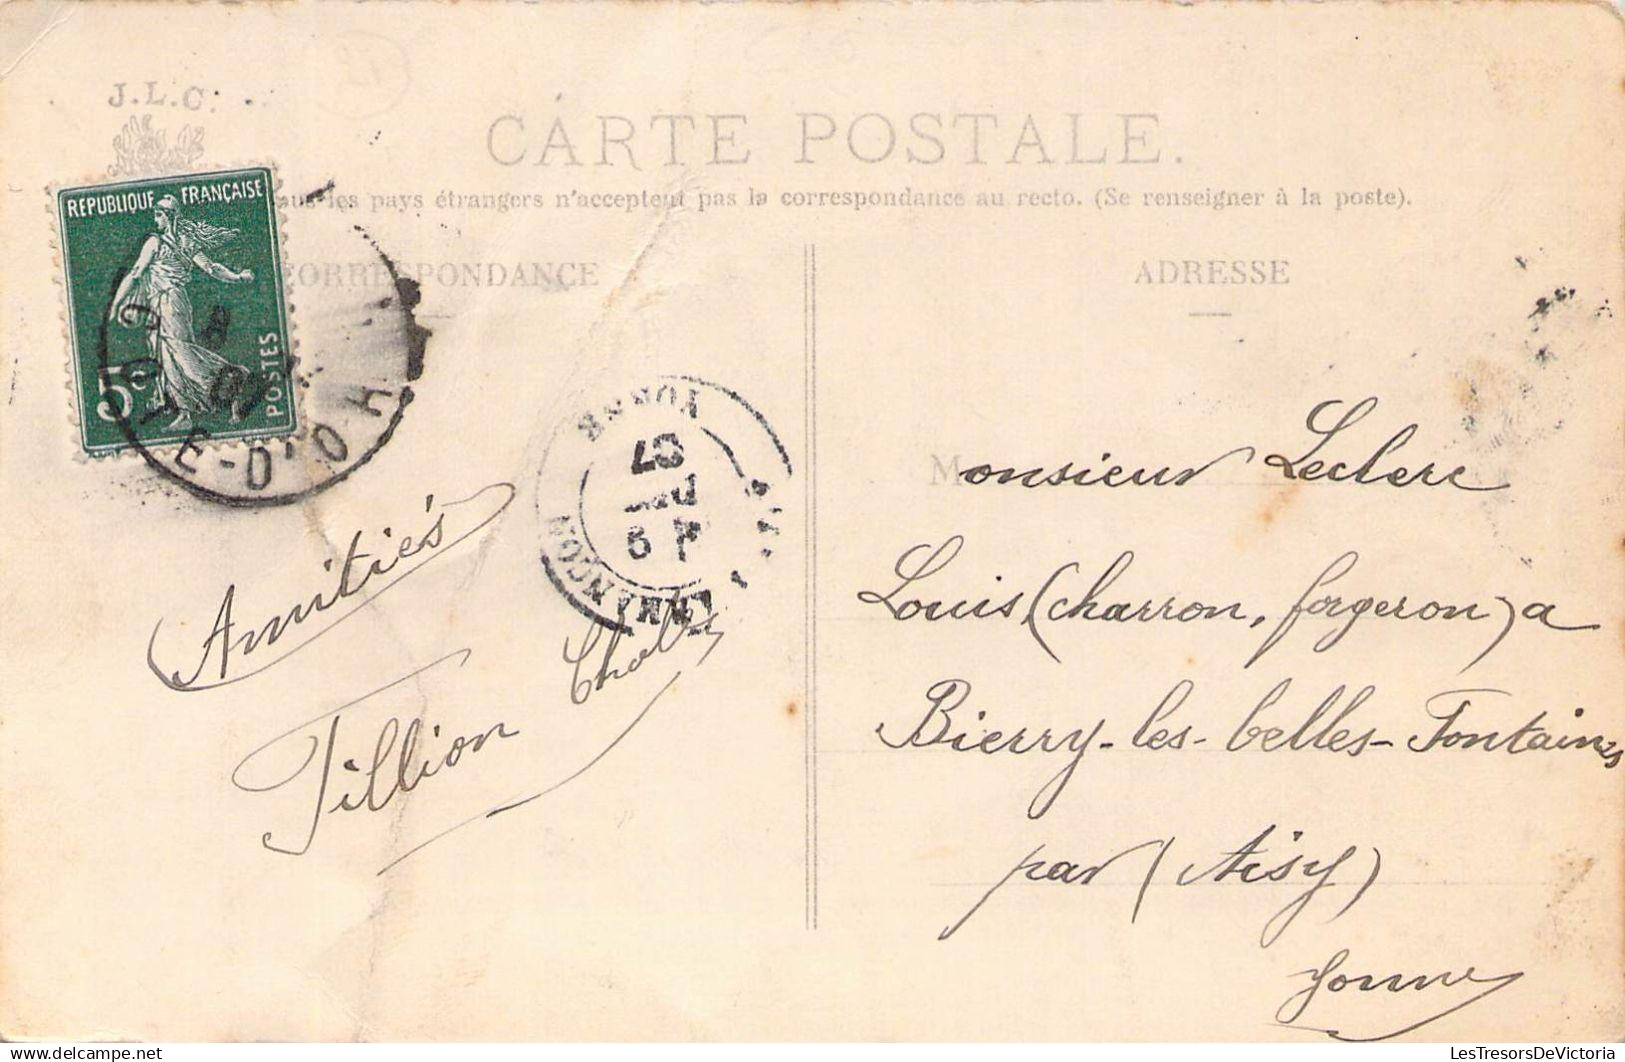 J.L.C.
CARTE POSTALE.
les pays étrangers n'acceptent pas la correspondance au recto. (Se renseigner à la poste).
CORRESPONDANCE
ADRESSE
REPUBLIQUE FRANÇAISE
5c POSTES
COTE-D'OR
07
YONNE
07
9
Amitiés
Tillion
Monsieur Leclerc
Louis (charron, forgeron) a
Bierry-les-belles-Fontaines
par (Aisy)
Yonne
LesTresorsDeVictoria